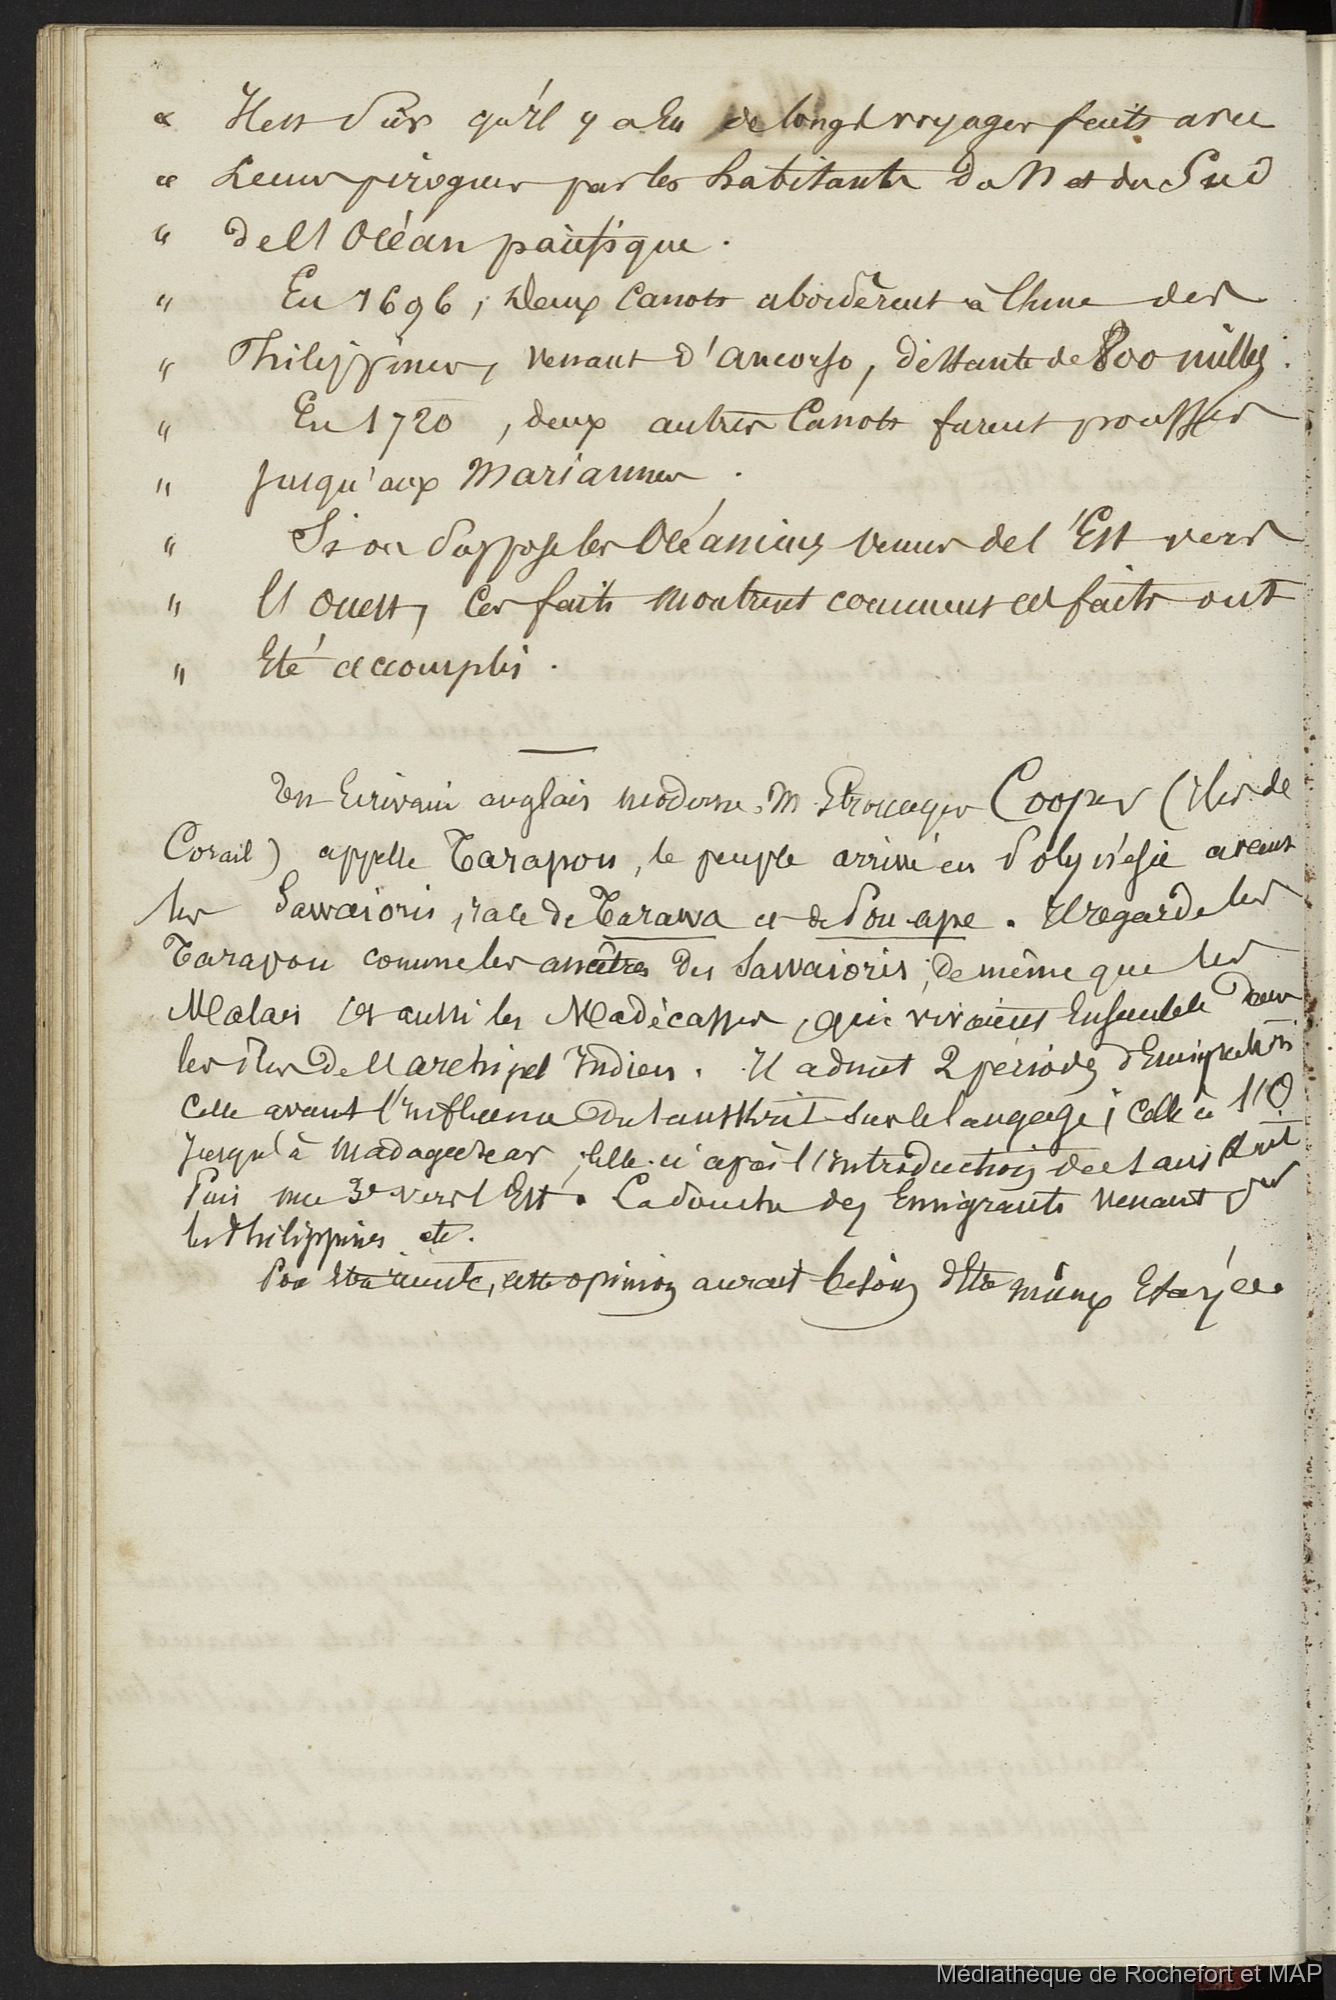 « Il est sûr qu'il y a Eu de longs voyages faits avec
« Leurs pirogues par les habitants du N et du Sud
" de l'Océan pacifique.
" En 1696, Deux Canots abordèrent à l'une des
" Philippines, venant d'ancorso, distante de 800 milles.
" En 1720, deux autres Canots furent poussés
" Jusqu'aux Mariannes.
" Si on suppose les Océaniens venus de l'Est vers
" l'Ouest, Ces faits montrent comment ces faits ont
" Eté accomplis.
Un Ecrivain anglais moderne, M. Cooper (Iles de
Corail) appelle Tarapon, le peuple arrivé en Polynésie avant
les Sawaioris, race de Tarawa et de Pou-ape. Il regarde les
Tarapon comme les ancêtres des Sawaioris, de même que les
Malais et aussi les Madécasses, qui vivaient Ensemble dans
les îles de l'archipel Indien. Il admet 2 périodes d'Emigration
Celle avant l'Influence du sanskrit sur le langage; Celle à l'O.
Jusqu'à Madagascar, Celle-ci après l'Introduction du sanskrit
Puis une 3e vers l'Est. La souche des Emigrants venant par
les Philippines etc.
cette opinion aurait besoin d'Etre mieux Etayée.